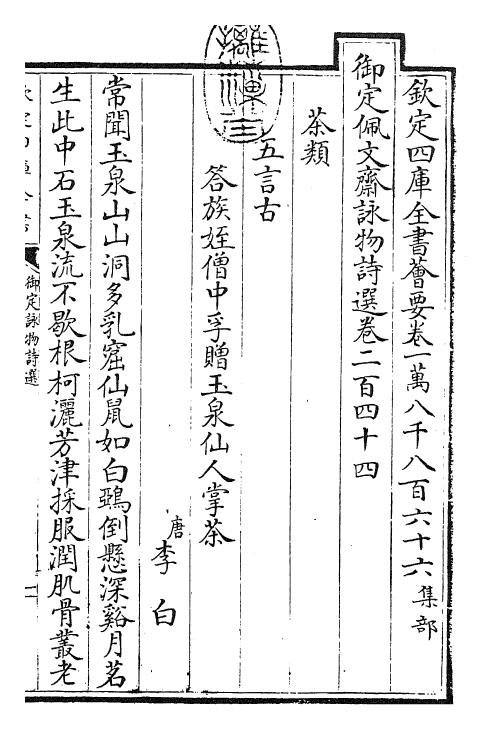 欽定四庫全書薈要卷一萬八千八百六十六集部
御定佩文齋詠物詩選卷二百四十四
茶類
五言古
答族姪僧中孚贈玉泉仙人掌茶
唐李白
常聞玉泉山山洞多乳窟仙鼠如白鴉倒懸深谿月茗
生此中石玉泉流不歇根柯灑芳津採服潤肌骨叢老
御定詠物詩選